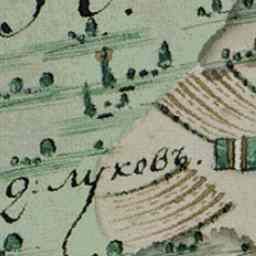 д: луковъ.